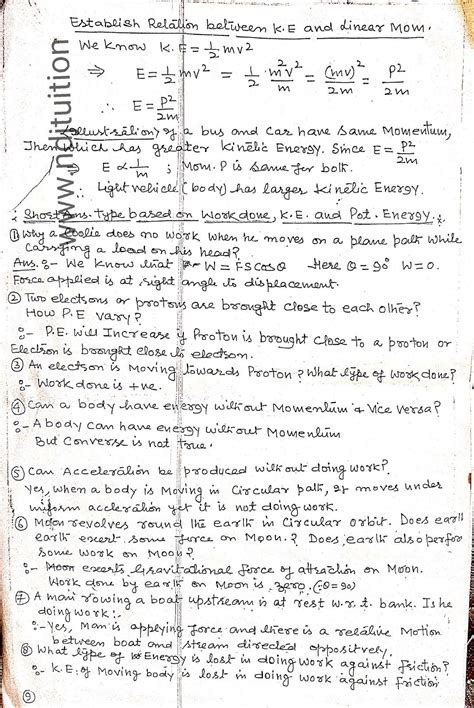 Establish Relation between K.E and Linear Mom.
We Know K.E = 1/2 mv²
⇒ E = 1/2 mv² = 1/2 · m²v²/m = (mv)²/2m = P²/2m
∴ E = P²/2m
(Illustration) If a bus and Car have Same Momentum,
Then which has greater Kinetic Energy. Since E = P²/2m
E ∝ 1/m ; Mom. P is Same for both.
∴ Light vehicle (body) has larger Kinetic Energy.
Short Ans. type based on Work done, K.E. and Pot. Energy.
① Why a Coolie does no work when he moves on a plane path While
Carrying a load on his head?
Ans. :- We Know that W = FS cosθ Here θ = 90° W = 0.
Force applied is at right angle to displacement.
② Two electrons or protons are brought close to each other?
How P.E vary?
:- P.E. Will Increase if Proton is brought Close to a proton or
Electron is brought close to electron.
③ An electron is Moving towards Proton? What type of work done?
:- Work done is +ve.
④ Can a body have energy without Momentum & Vice versa?
:- A body Can have energy without Momentum
But Converse is not true.
⑤ Can Acceleration be produced without doing work?
Yes, when a body is Moving in Circular path, It moves under
uniform accleration yet it is not doing work.
⑥ Moon revolves round the earth in Circular orbit. Does earth
earth exert some force on Moon? Does earth also perform
some work on Moon?
:- Moon exerts Gravitational force of attraction on Moon.
Work done by earth on Moon is zero. (∵ θ = 90)
⑦ A man rowing a boat upstream is at rest w.r.t. bank. Is he
doing work:-
:- Yes, Man is applying force and there is a relative Motion
between boat and stream directed oppositively.
⑧ What type of Energy is lost in doing work against friction?
:- K.E. of Moving body is lost in doing work against friction
⑨
www.nditution